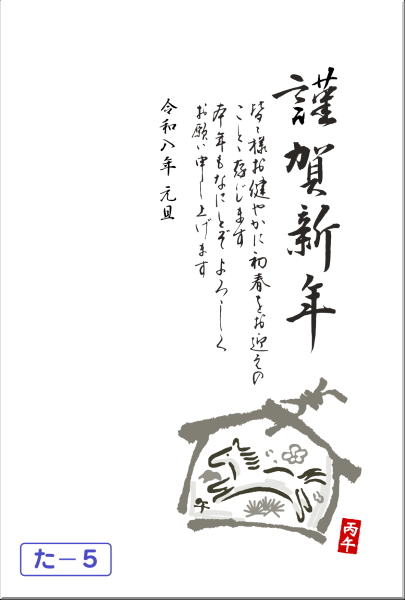 謹賀新年
皆々様お健やかに初春をお迎えの
ことゝ存じます
本年もなにとぞよろしく
お願い申し上げます
令和八年 元旦
午
丙午
た－5